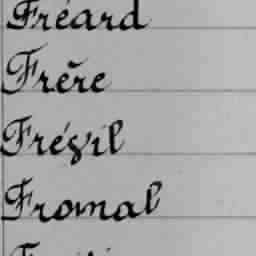 Fréard
Frère
Frévil
Fromal